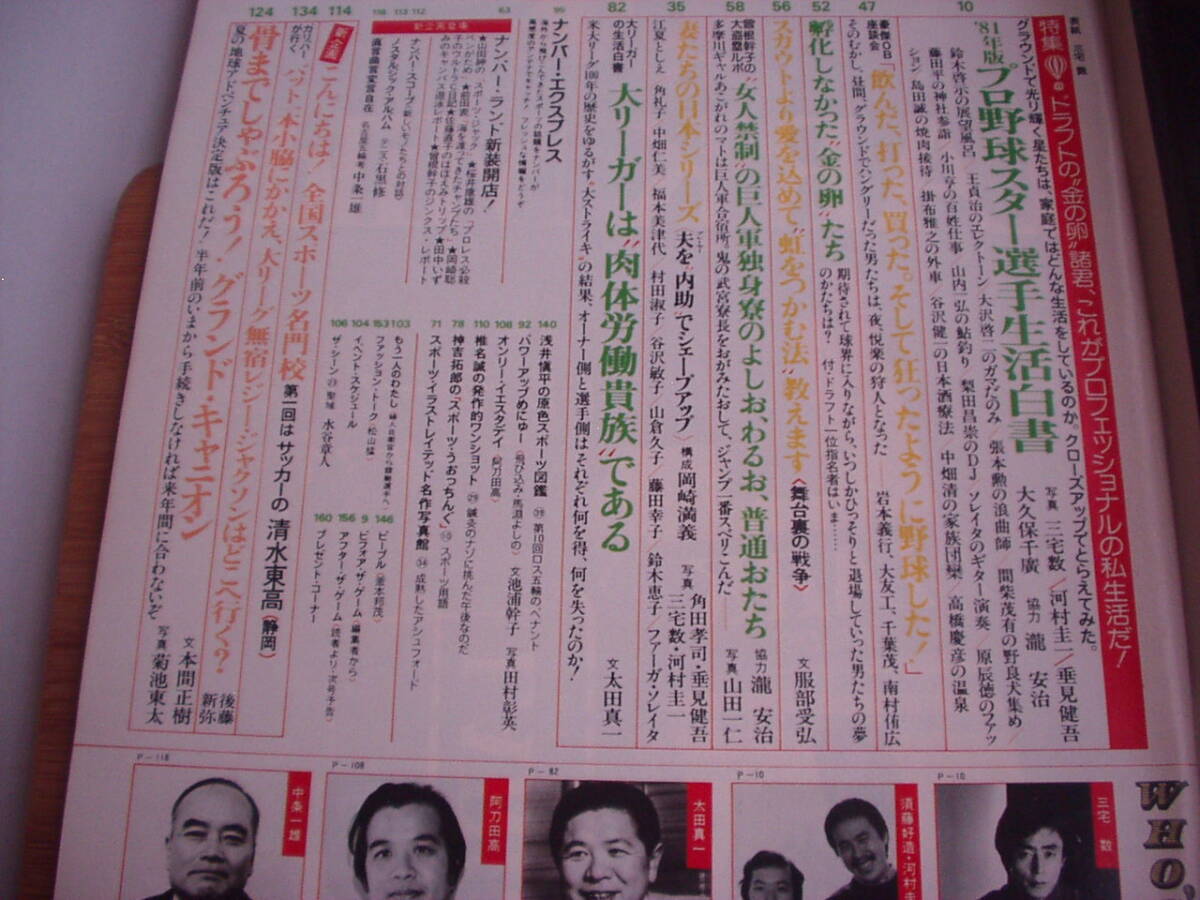 表紙 三宅 数
特集 ドラフトの“金の卵”諸君、これがプロフェッショナルの私生活だ!
グラウンドで光り輝く星たちは、家庭ではどんな生活をしているのか。クローズアップでとらえてみた。
10
'81年版プロ野球スター選手生活白書
写真 三宅数/河村圭一/垂見健吾
大久保千廣 協力 瀧 安治
鈴木啓示の展望風呂 王貞治のエレクトーン 大沢啓二のガマだのみ 張本勲の浪曲師 間柴茂有の野良犬集め/
藤田平の神社参詣/小川亨の百姓仕事 山内 弘の鮎釣り 梨田昌崇のDJ ソレイタのギター演奏 原辰徳のファッ
ション 島田誠の焼肉接待 掛布雅之の外車 谷沢健一の日本酒療法 中畑清の家族団欒 高橋慶彦の温泉
47
豪傑OB座談会
「飲んだ、打った、買った。そして狂ったように野球した!」
岩本義行、大友工、千葉茂、南村侑広
そのむかし、昼間、グラウンドでハングリーだった男たちは、夜、悦楽の狩人となった
52
孵化しなかった“金の卵”たち
期待されて球界に入りながら、いつしかひっそりと退場していった男たちの夢
のかたちは? 付・ドラフト一位指名者はいま……
56
スカウトより愛を込めて“虹をつかむ法”教えます
〈舞台裏の戦争〉
文 服部受弘
58
曽根幹子の大追跡ルポ
“女人禁制”の巨人軍独身寮のよしお、わるお、普通おたち
協力 瀧 安治
写真 山田一仁
多摩川ギャルあこがれのマトは巨人軍合宿所。鬼の武宮寮長をおがみたおして、ジャンプ一番スベリこんだ——
35
妻たちの日本シリーズ
〈夫を“内助”でシェープアップ〉
構成 岡崎満義
写真 角田孝司・垂見健吾
三宅数・河村圭一
江夏としえ 角礼子 中畑仁美 福本美津代 村田淑子 谷沢敏子/山倉久子/藤田幸子/鈴木恵子/ファーガ・ソレイタ
82
大リーガーの生活白書
大リーガーは“肉体労働貴族”である
文 太田真一
米大リーグ100年の歴史をゆるがす“大ストライキ”の結果、オーナー側と選手側はそれぞれ何を得、何を失ったのか!
95
ナンバー・エクスプレス
海外から飛びこんできたスポーツの話題をナンバーが
高感度のアンテナでキャッチ! フレッシュな情報をどうぞ
140
浅井慎平の原色スポーツ図鑑
第10回ロス五輪の、ペナント
92
パワーアップめにゅー
〈飛び込み・馬渕よしの〉
文 池浦幹子 写真 田村彰英
108
オンリー・イエスタデイ
〈阿刀田高〉
110
椎名誠の発作的ワンショット
鍼灸のナゾに挑んだ午後なのだ
78
神吉拓郎の「スポーツ・うおっちんぐ」
スポーツ用語
71
スポーツ・イラストレイテッド名作写真館
成熟したアシュフォード
63
新企画登場
ナンバー・ランド新装開店!
★山田紳のスポーツ・ジャック ★桜井康雄の「プロレス必殺
★前田衷「海を渡ってきたチャンプたち」★岡崎聡
子のウルトラC日記★佐藤直子のほほえみトリップ★田中いず
みのキャンパス遊泳レポート★曽根幹子のジンクス・レポート
112
ナンバー・スコープ
113
ノスタルジック・アルバム テニス・石黒 修
118
直球曲言変言自在
中条一雄
103
もう一人のわたし
153
ファッション・トーク
〈松山猛〉
104
イベント・スケジュール
106
ザ・シーン
聖域 水谷章人
146
ピープル
9
ビフォア・ザ・ゲーム〈編集者から〉
156
アフター・ザ・ゲーム〈読者より・次号予告〉
160
プレゼント・コーナー
114
新企画
こんにちは! 全国スポーツ名門校
第一回はサッカーの 清水東高〈静岡〉
134
ガリバーが行く
バット一本小脇にかかえ、大リーグ無宿レジー・ジャクソンはどこへ行く?
後藤新弥
124
骨までしゃぶろう! グランド・キャニオン
文 本間正樹
写真 菊池東太
夏の地球アドベンチュア決定版はこれだ! 半年前のいまから手続きしなければ来年間に合わないぞ
WHO,
P-10
三宅 数
P-10
須藤好造・河村圭
P-82
太田真一
P-108
阿刀田高
P-118
中条一雄